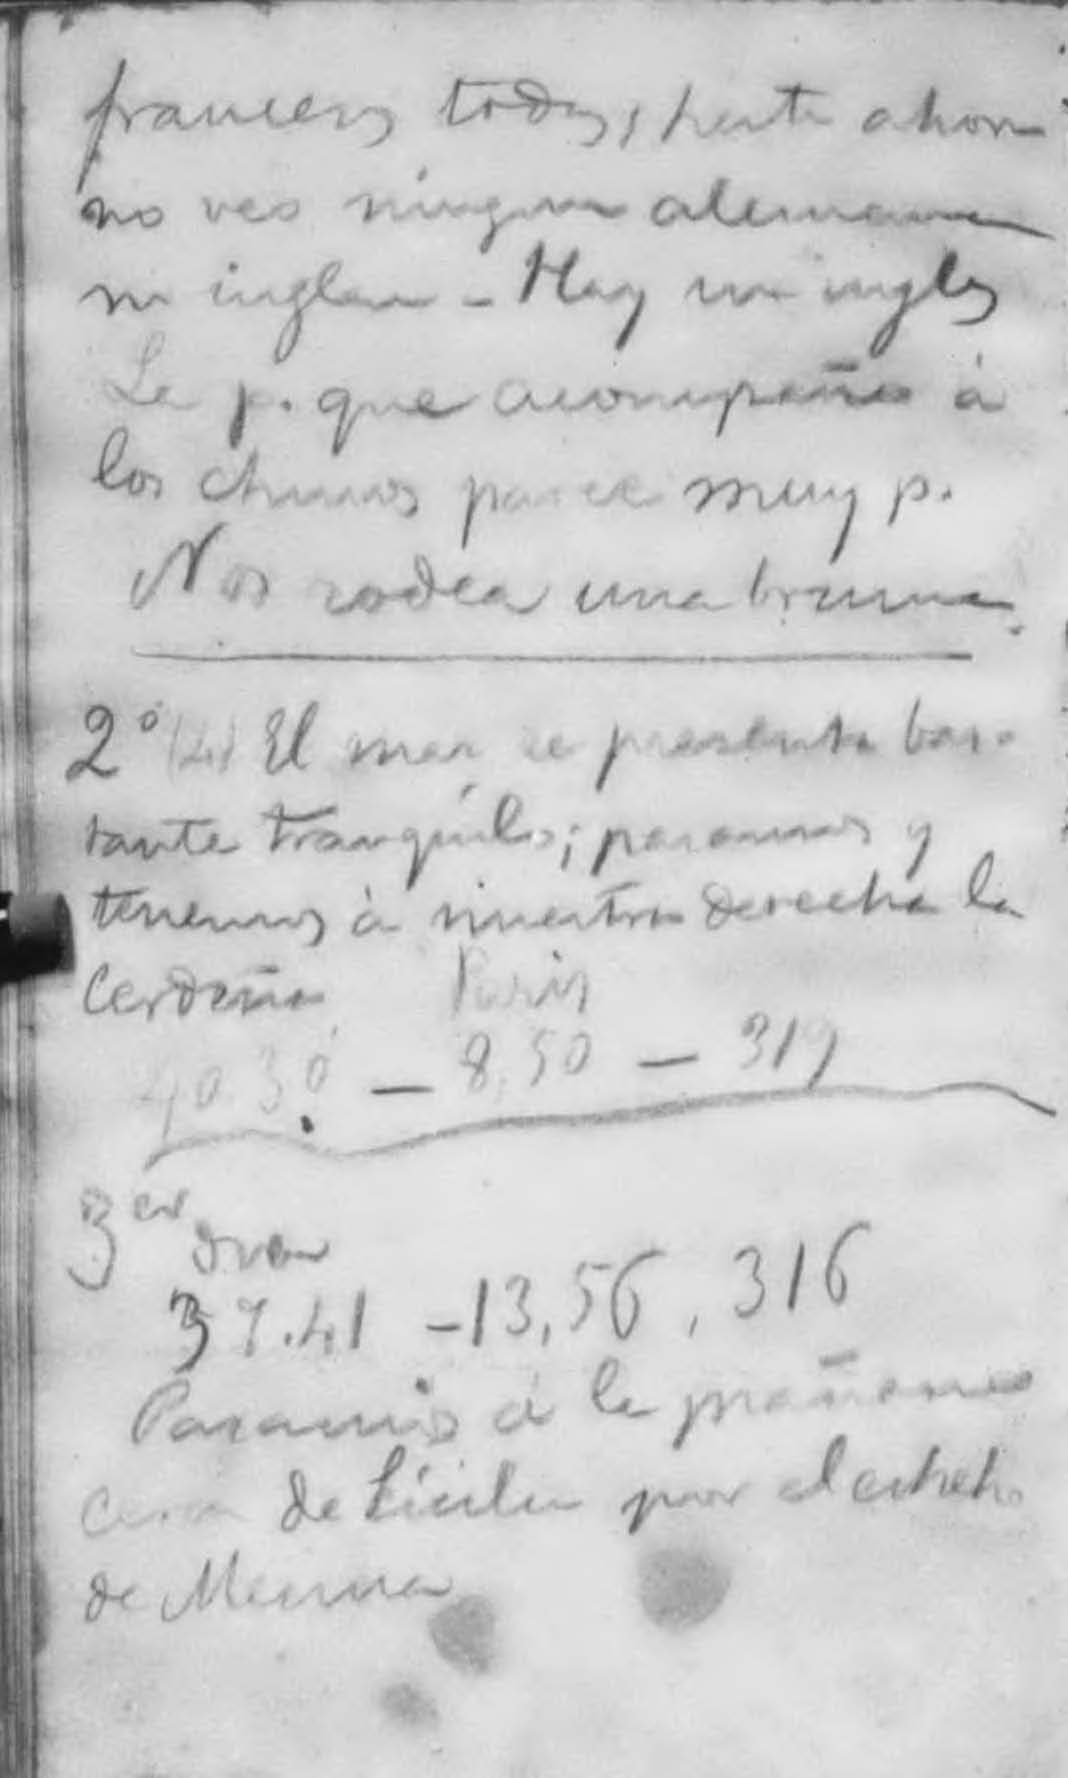 franceses todos, hasta ahora
no veo ninguna alemana
ni inglesa - Hay un inglés
La p. que acompaña á
los chinos parece muy p.
Nos rodea una bruma.
2º El mar se presenta bas-
tante tranquilo; pasamos y
tenemos á nuestra derecha la
Cerdeña Paris
40.30 — 8,50 — 319
3er dia
37.41 - 13,56, 316
Pasamos á la mañana
cerca de Sicilia por el estrecho
de Messina